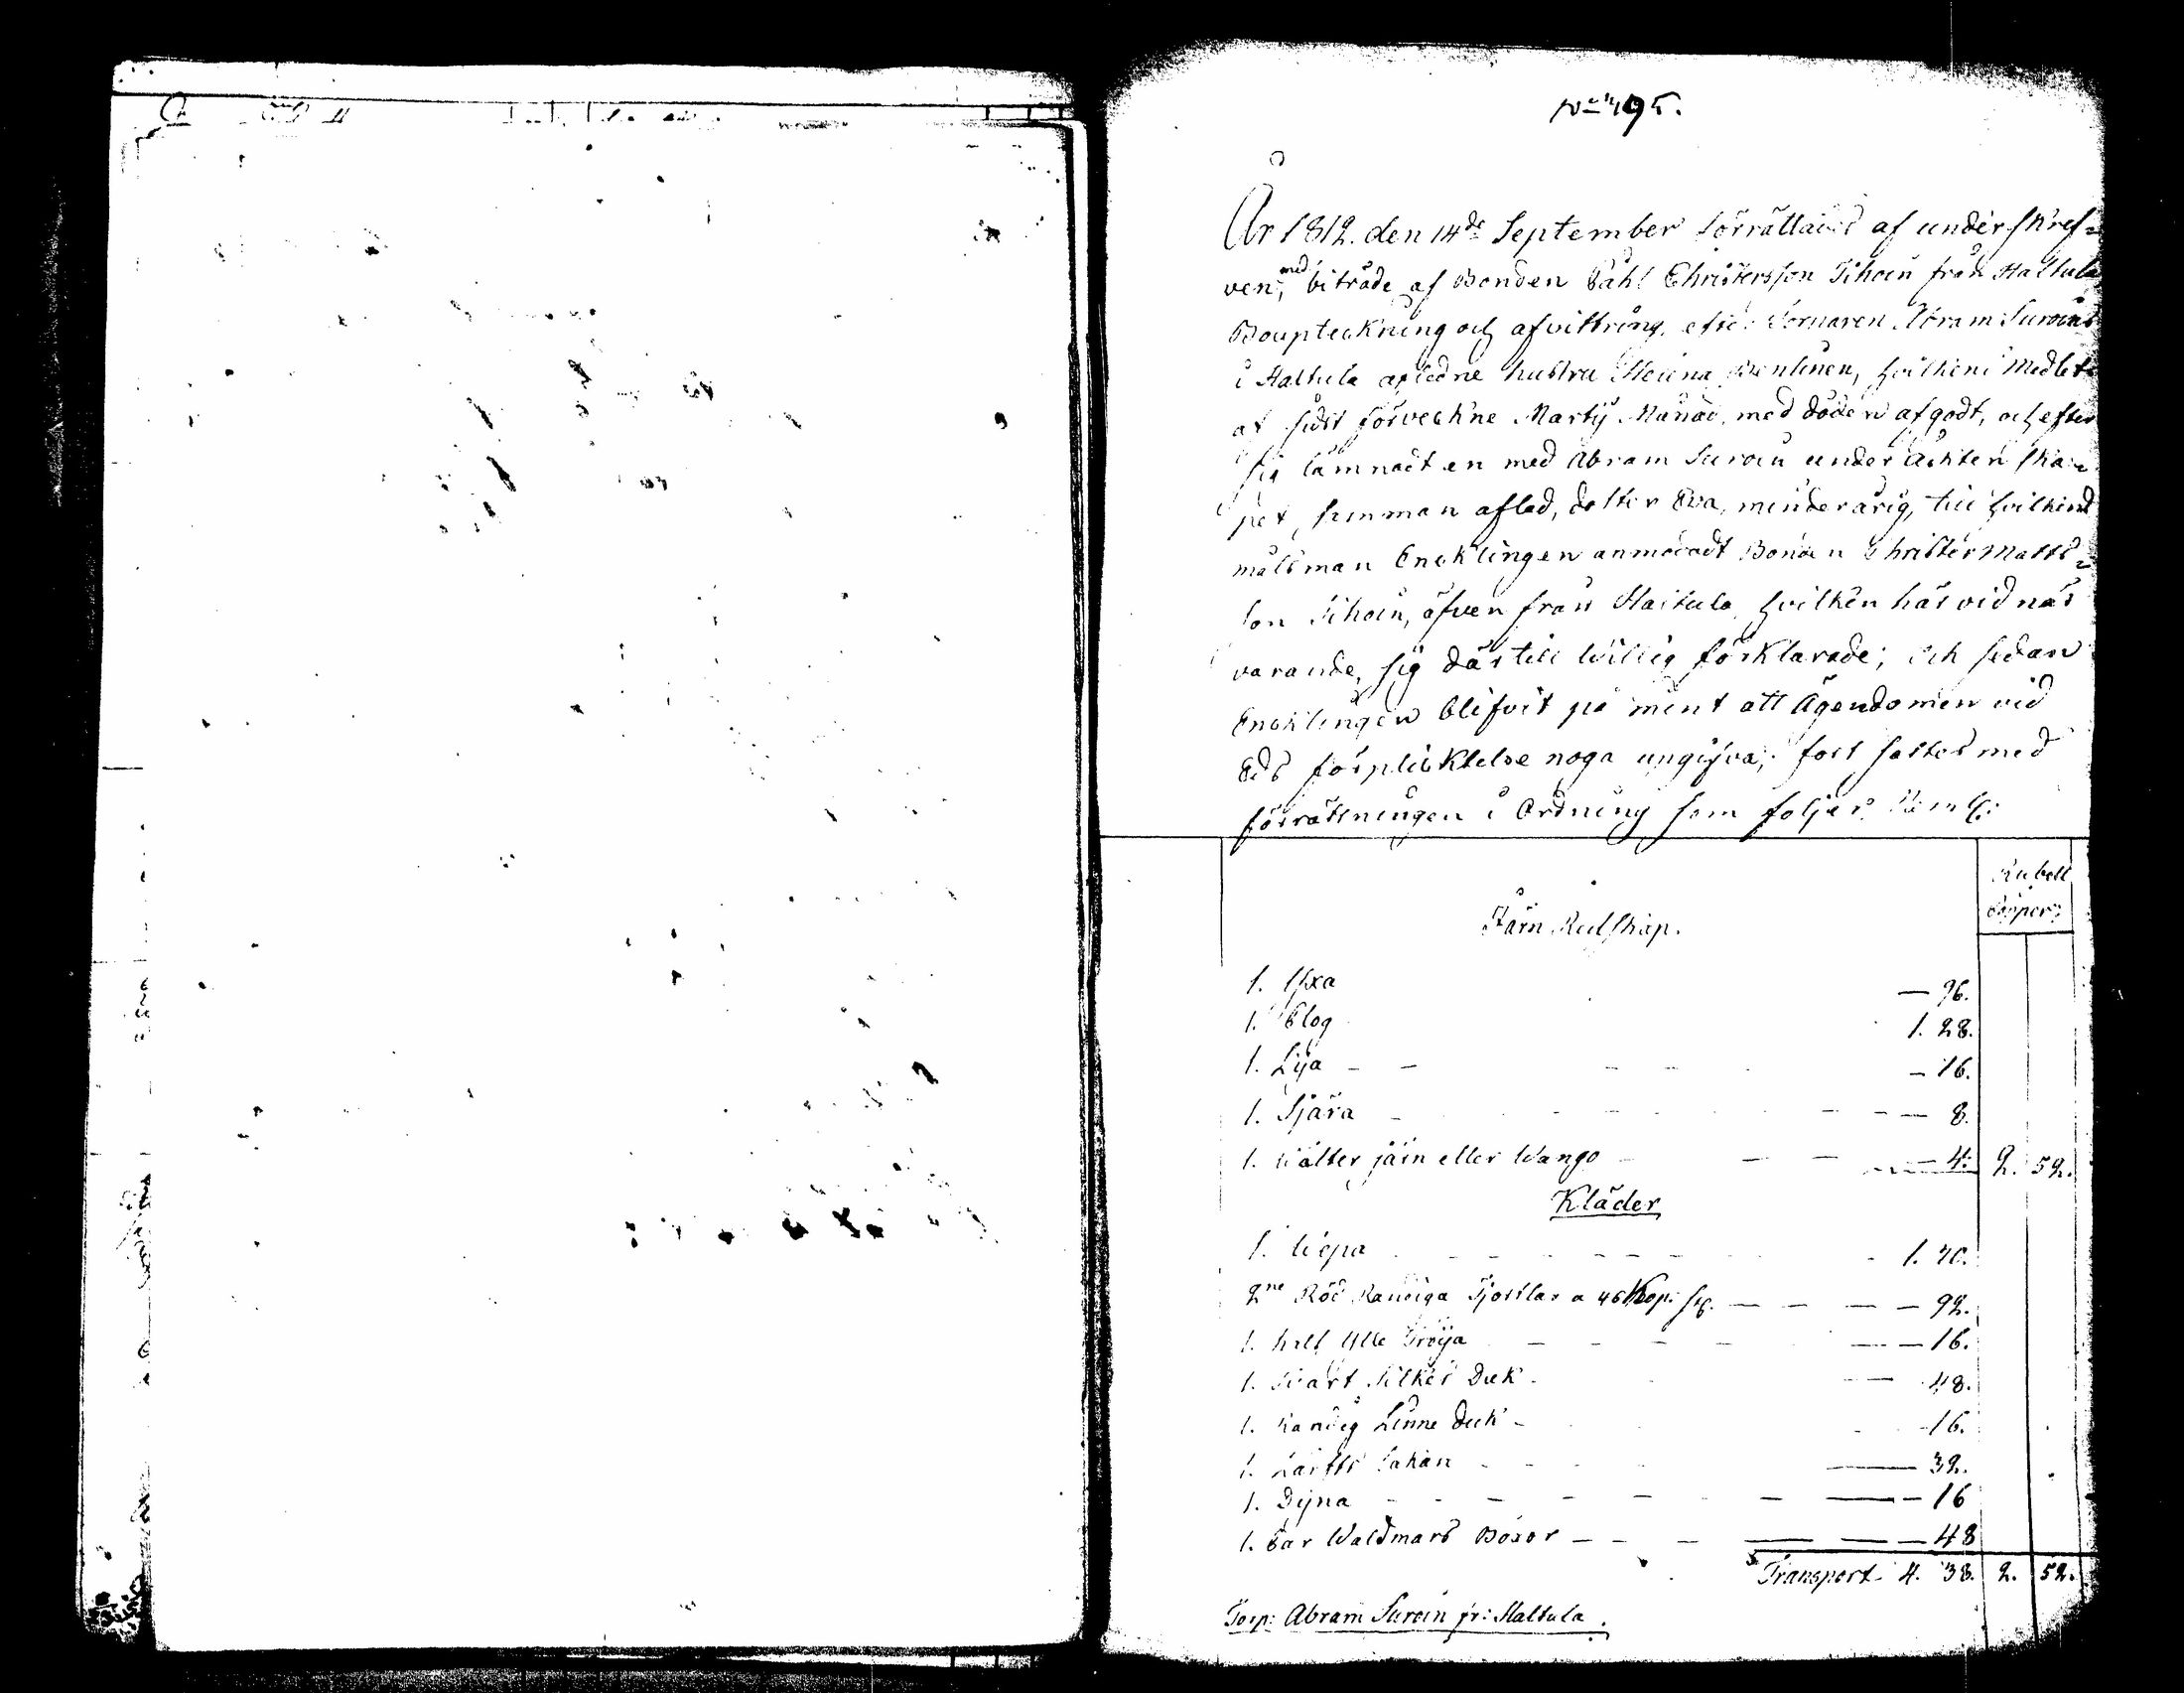 No 495.
År 1812. den 14de September förrättades af underskref=
ven, med biträde af Bonden Påhl Christersson Tihoin från Haltula
Bouptekning och afvittring, efter Tornaren Abram Suroins
i Haltula aflidne hustru Helena, hvilken medlet
af sidst förveckne Martij Månad, med döden afgådt, och efter
sig lämnadt en med Abram Suroin under Äckten ska=
pet, samman aflad, dotter Eva, minderårig, till hvilkens
målsman Encklingen anmodadt Bonden Christer Matts=
son Tihoin, äfven från Haltula, hvilken här vid när
varande, sig därtill willig förklarade; och sedan
Encklingen blifvit påmint att Ägendomen vid
Eds förplicktelse noga ungifva, fort sattes med
förrättningen i Ordning som följer Neml:
Rubell
Kopper
Järn Redskap.
1. Yxa — 96.
1. Plog 1. 28.
1. Lija — 16.
1. Skära — 8.
1. Wålter järn eller Wango — 4. 2. 52.
Kläder
1. Wepa 1. 70.
2ne Röd Randiga Kjortlar a 46 Kop: st. — 92.
1. half Ylle Tröija — 16.
1. Svart Silkes Duk — 48.
1. Randig Linne Duk — 16.
1. Lärfts Lakan — 32.
1. Dyna — 16
1. Par Waldmars Böxor — 48
Transport 4. 38. 2. 52.
Torp: Abram Suroin fr: Haltula.